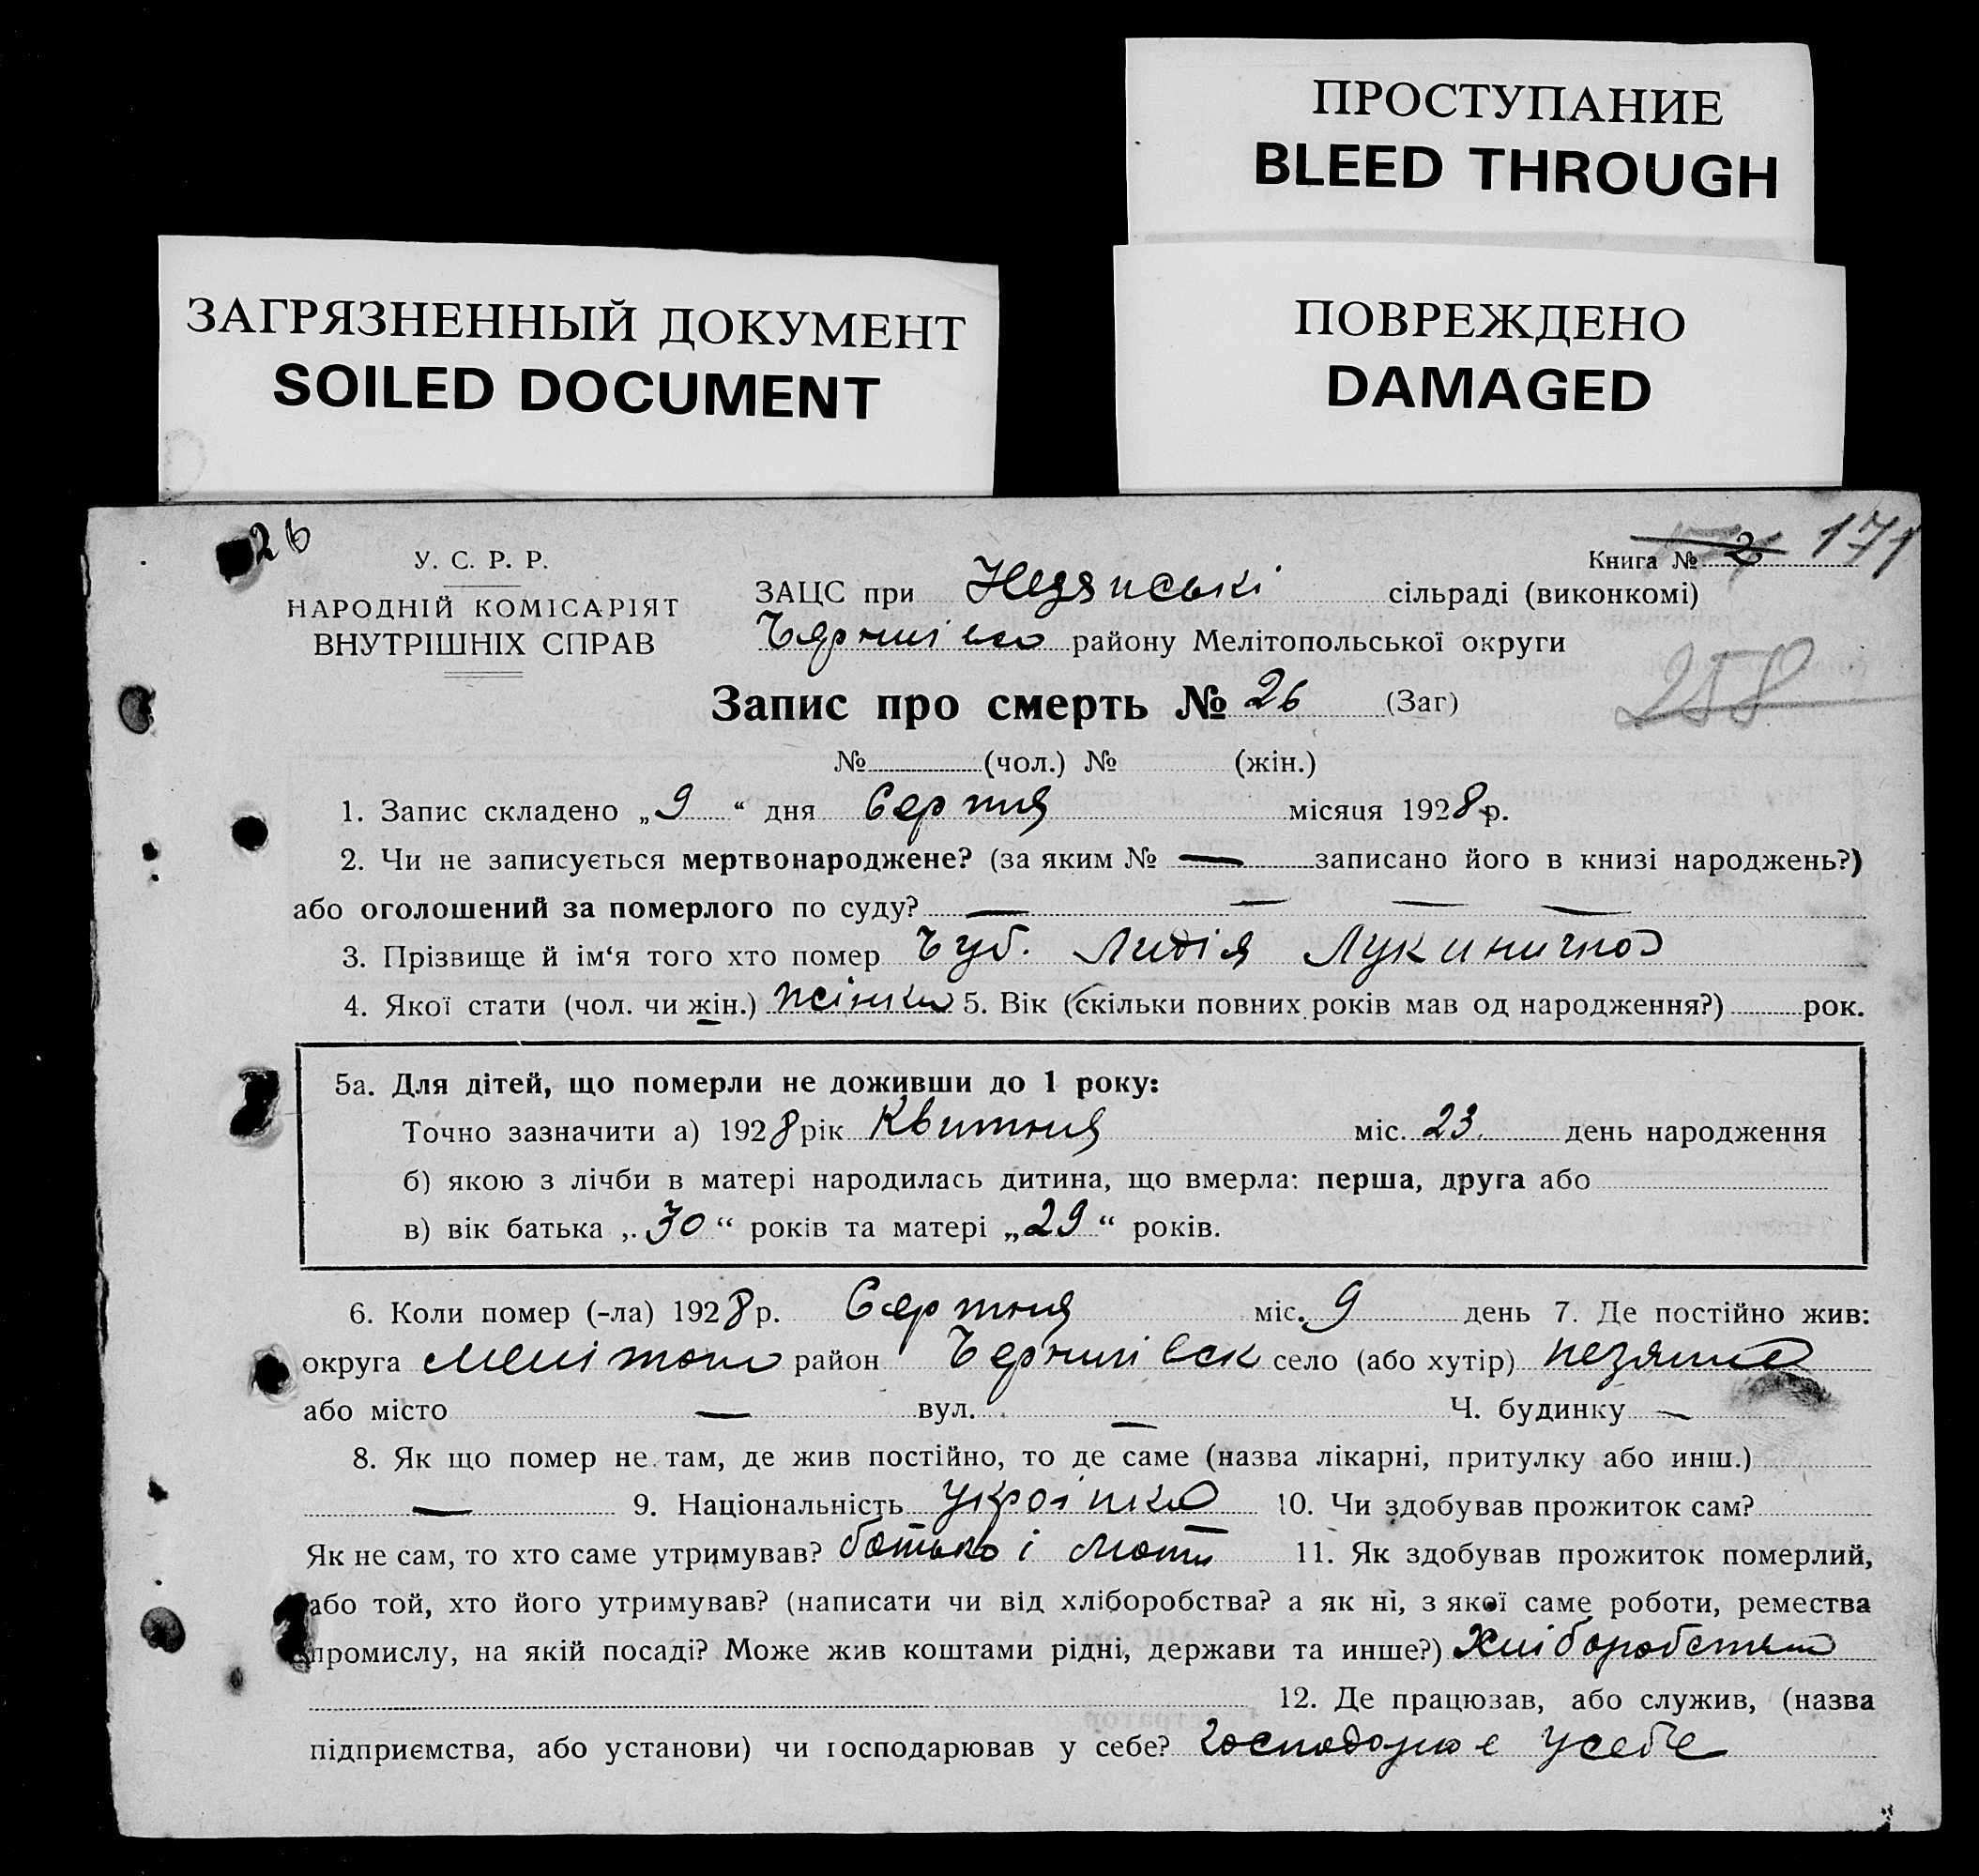 ПРОСТУПАНИЕ
BLEED THROUGH
ЗАГРЯЗНЕННЫЙ ДОКУМЕНТ
SOILED DOCUMENT
ПОВРЕЖДЕНО
DAMAGED
26
У. С. Р. Р.
НАРОДНІЙ КОМІСАРІЯТ
ВНУТРІШНІХ СПРАВ
Книга № 2 171
ЗАЦС при сільраді (виконкомі)
району Мелітопольської округи
258
Запис про смерть № 26 (Заг)
№ (чол.) № (жін.)
1. Запис складено „9“ дня Серпня місяця 1928 р.
2. Чи не записується мертвонароджене? (за яким № — записано його в книзі народжень?)
або оголошений за померлого по суду? — — — —
3. Прізвище й ім‘я того хто помер Чуб. Лидія Лукинична
4. Якої стати (чол. чи жін.) жінка 5. Вік (скільки повних років мав од народження?) рок.
5а. Для дітей, що померли не доживши до 1 року:
Точно зазначити а) 1928 рік Квитня міс. 23 день народження
б) якою з лічби в матері народилась дитина, що вмерла: перша, друга або
в) вік батька „30“ років та матері „29“ років.
6. Коли помер (-ла) 1928 р. Серпня міс. 9 день 7. Де постійно жив:
округа Мелітоп район Чернигівск село (або хутір)
або місто — вул. — Ч. будинку —
8. Як що помер не там, де жив постійно, то де саме (назва лікарні, притулку або инш.)
— 9. Національність Українка 10. Чи здобував прожиток сам?
Як не сам, то хто саме утримував? батько і мати 11. Як здобував прожиток померлий,
або той, хто його утримував? (написати чи від хліборобства? а як ні, з якої саме роботи, ремества
промислу, на якій посаді? Може жив коштами рідні, держави та инше?)
12. Де працював, або служив, (назва
підприємства, або установи) чи господарював у себе? Господарює усебе